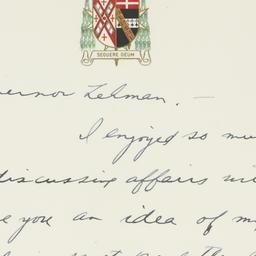 SEQUERE DEUM
vernor Lehman. –
I enjoyed so mu
discussing affairs wi
e you an idea of m